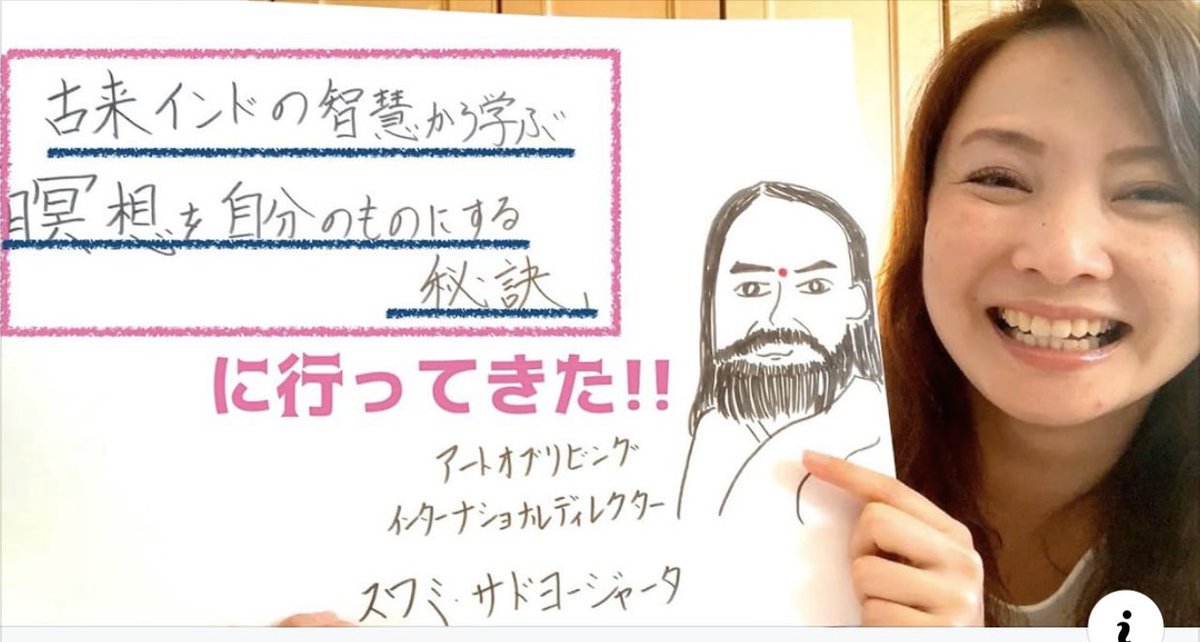 古来インドの智慧から学ぶ
瞑想を自分のものにする
秘訣」
に行ってきた!!
アートオブリビング
インターナショナルディレクター
スワミ・サドヨージャータ
i